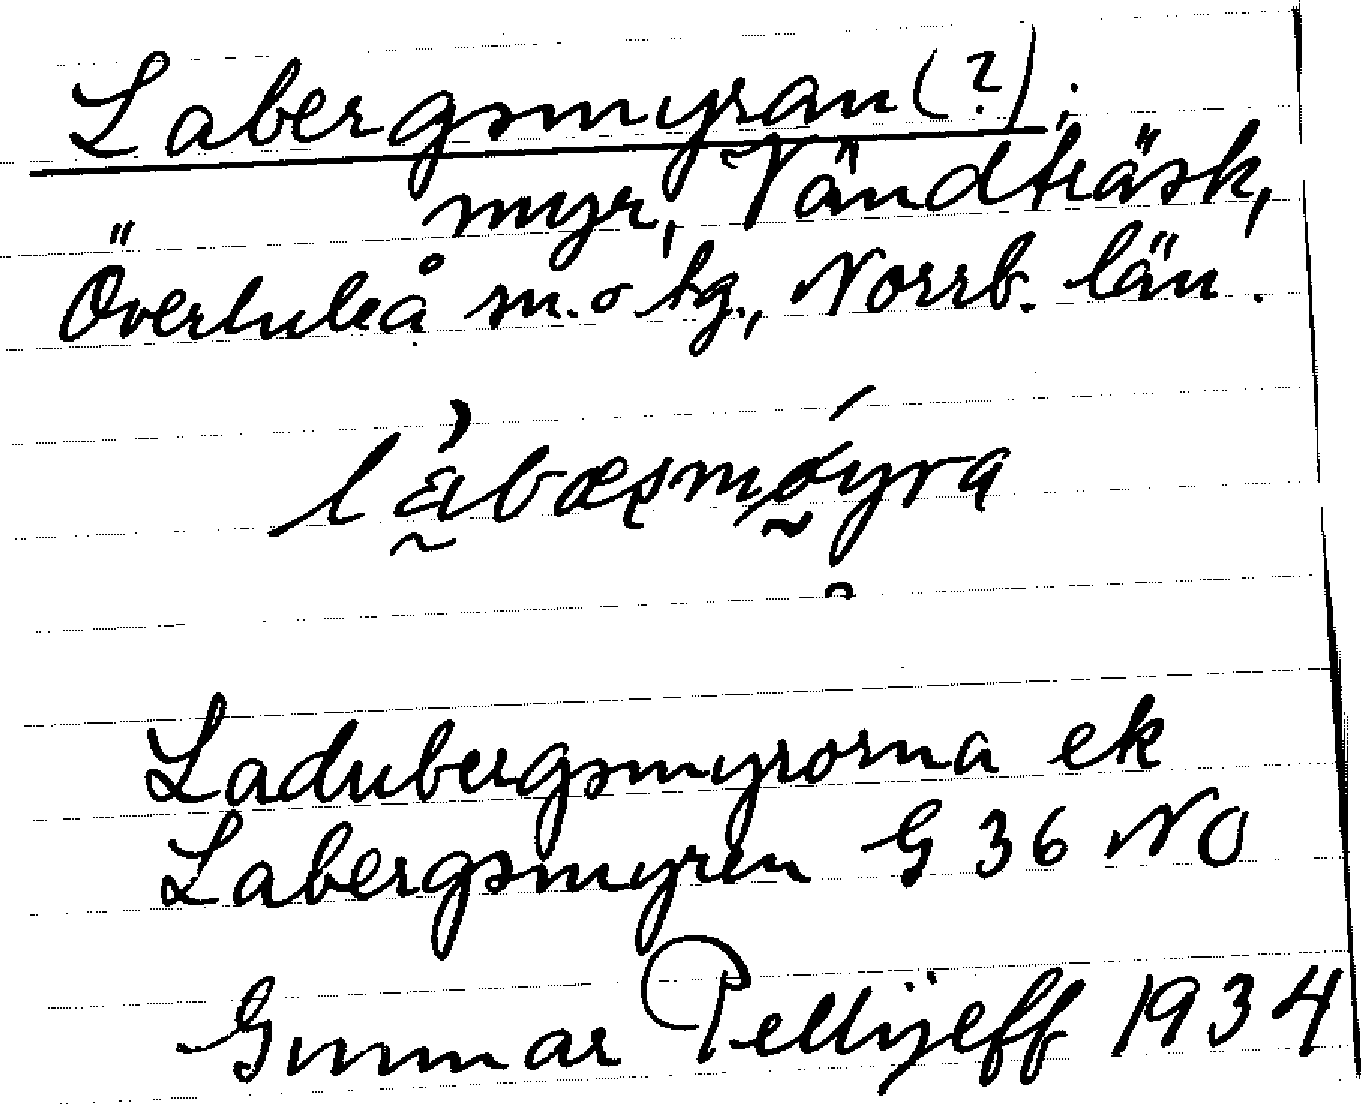 Labergsmyran (?);
myr, Vändträsk,
Överluleå sn. o tg., Norrb. län.
Ladubergsmyrorna ek
Labergsmyren G 36 NO
Gunnar Pellijeff 1934